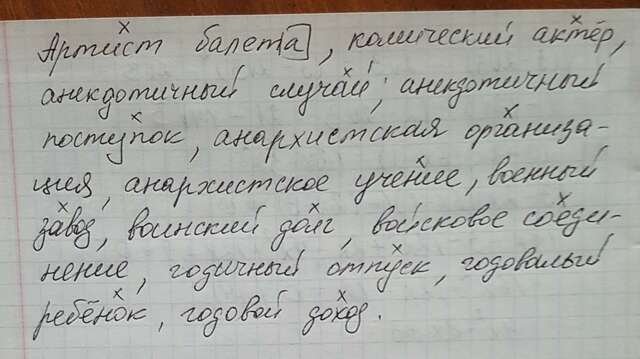 Артист балет[а], комический актёр,
анекдотичный случай, анекдотичный
поступок, анархистская организа-
ция, анархистское учение, военный
завод, воинский долг, войсковое соеди-
нение, годичный отпуск, годовалый
ребёнок, годовой доход.